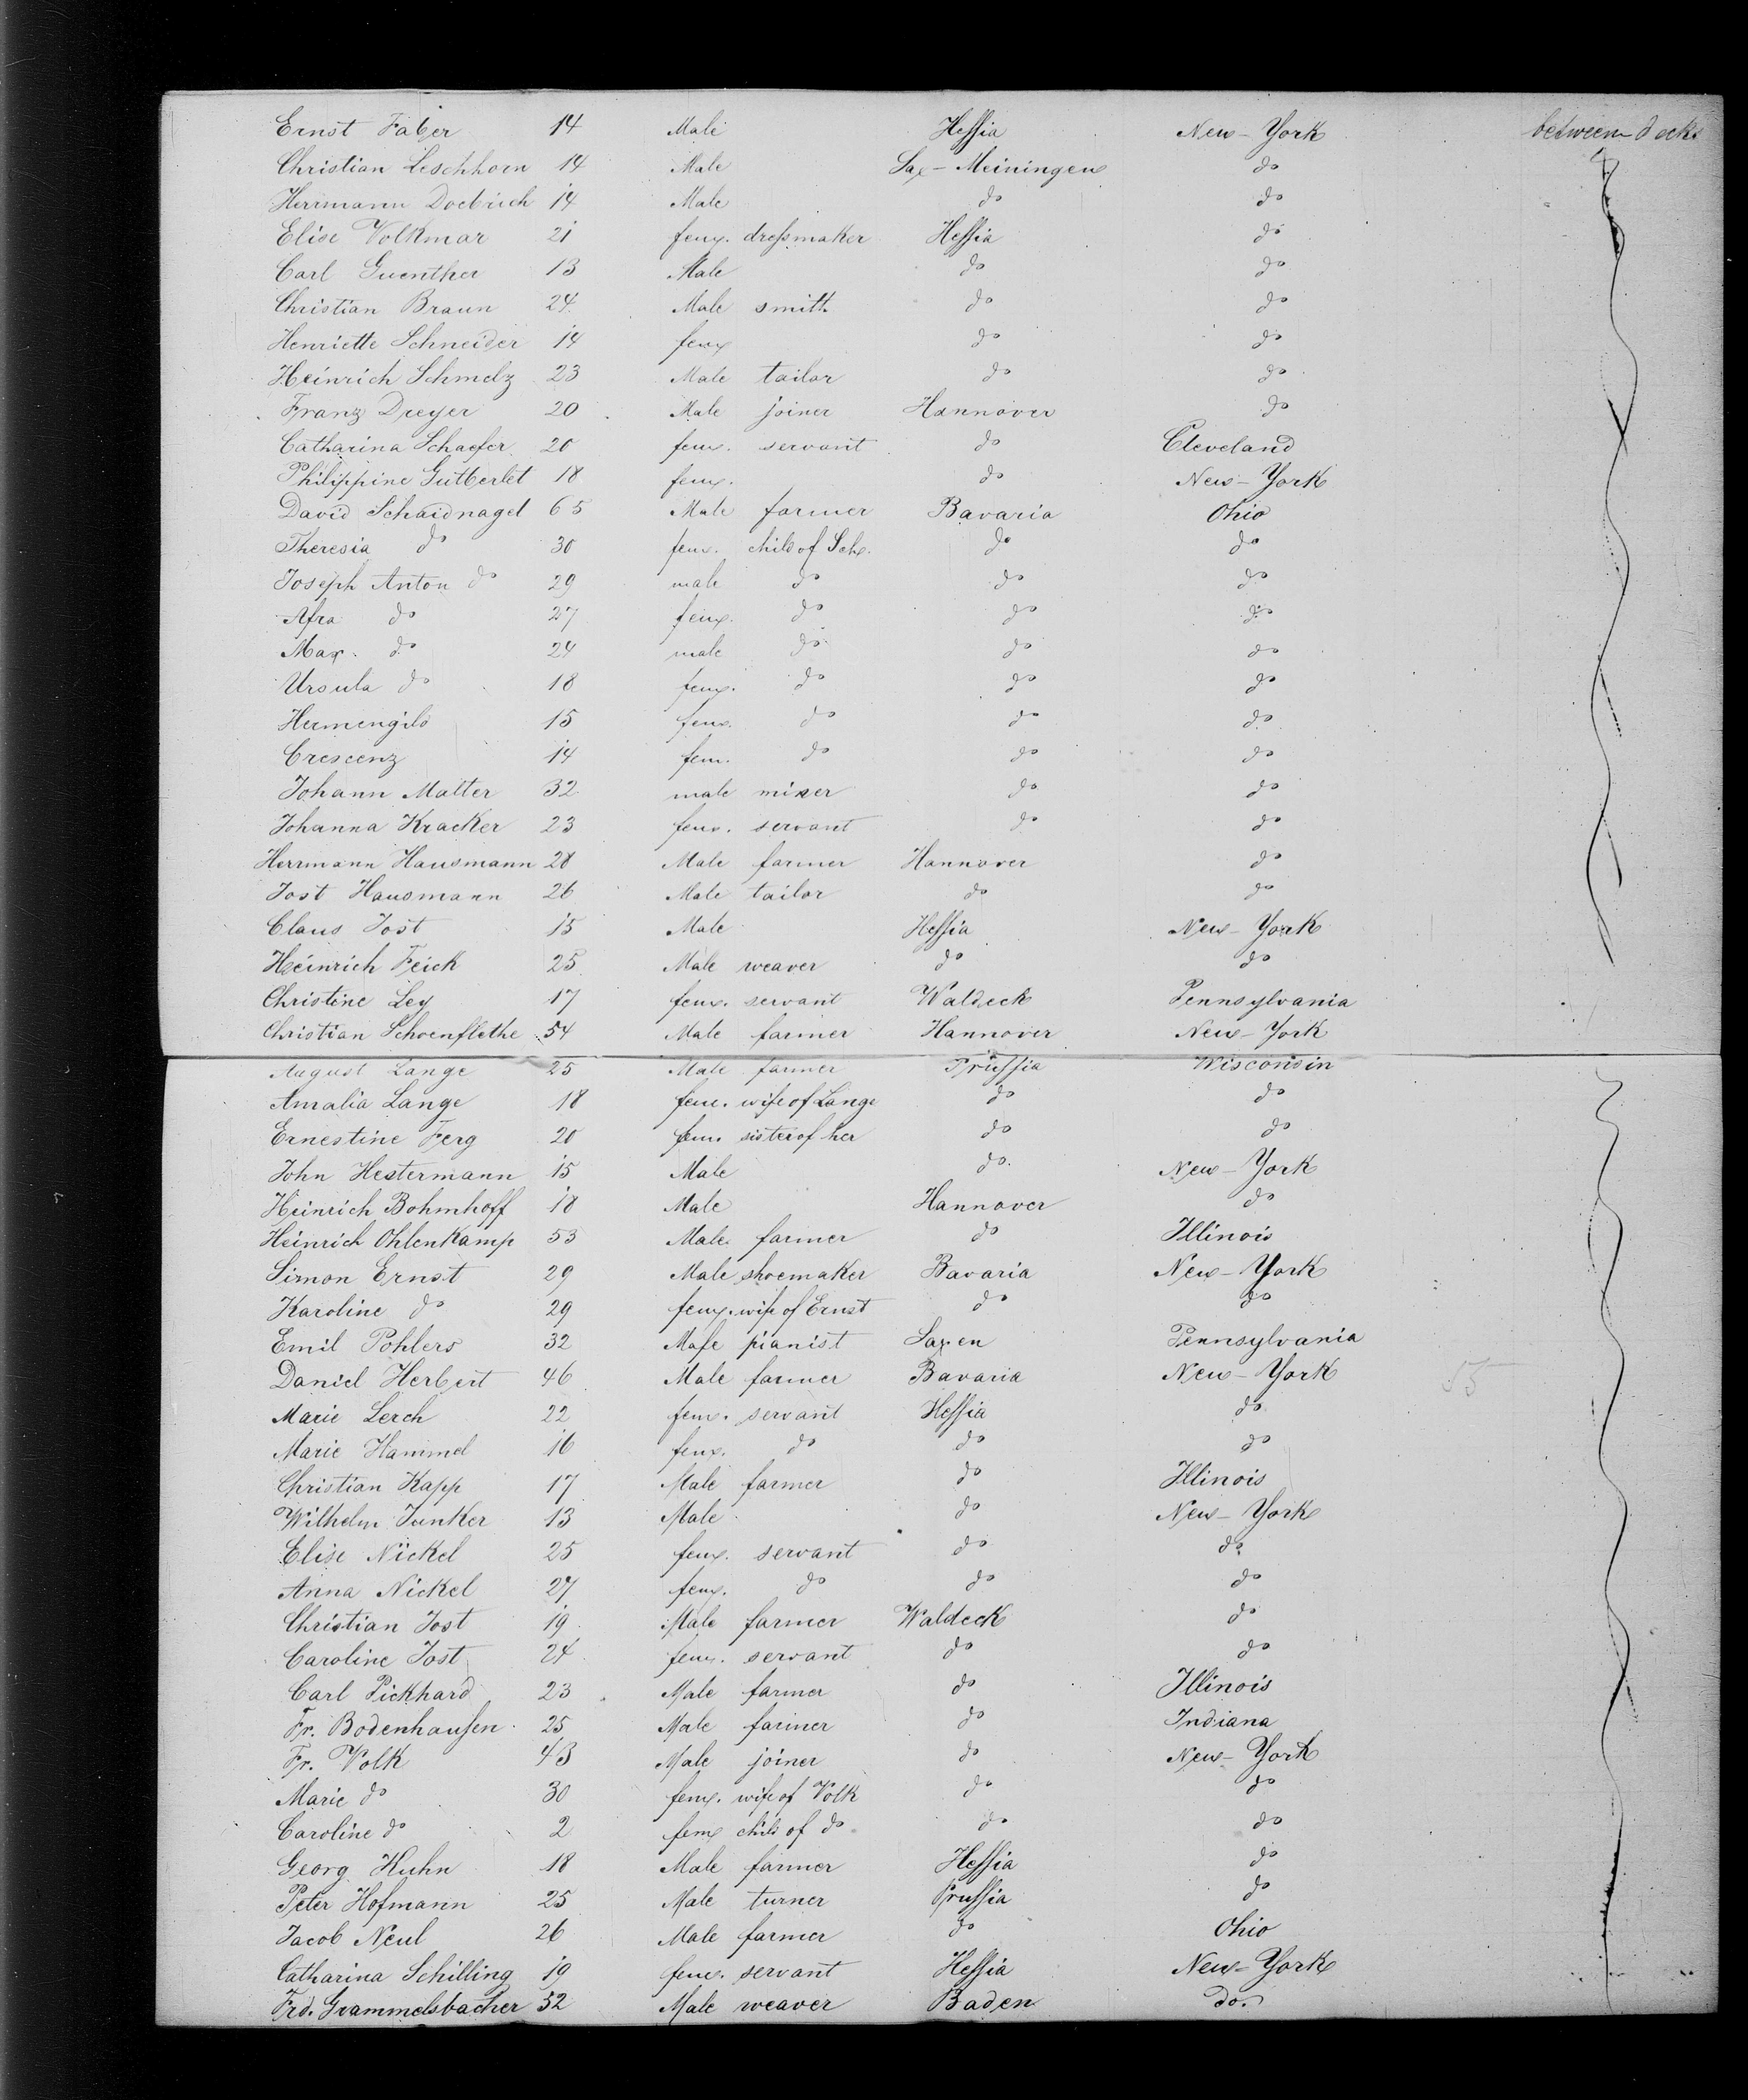 Ernst Faber 14 Male Hessia New-York between decks
Christian Leschhorn 14 Male Sax-Meiningen do
Herrmann Doebrich 14 Male do do
Elise Volkmar 21 fem. dressmaker Hessia do
Carl Guenther 13 Male do do
Christian Braun 24 Male smith do do
Henriette Schneider 14 fem do do
Heinrich Schmelz 23 Male tailor do do
Franz Dreyer 20 Male joiner Hannover do
Catharina Schaefer 20 fem. servant do Cleveland
Philippine Gutberlet 18 fem. do New-York
David Schaidnagel 65 Male farmer Bavaria Ohio
Theresia do 30 fem. child of Sch. do do
Joseph Anton do 29 male do do do
Afra do 27 fem. do do do
Max. do 24 male do do do
Ursula do 18 fem. do do do
Hermengild 15 fem. do do do
Crescenz 14 fem. do do do
Johann Matter 32 male miner do do
Johanna Kracker 23 fem. servant do do
Herrmann Hausmann 28 Male farmer Hannover do
Jost Hausmann 26 Male tailor do do
Claus Jost 15 Male Hessia New-York
Heinrich Feick 25 Male weaver do do
Christine Ley 17 fem. servant Waldeck Pennsylvania
Christian Schoenflethe 54 Male farmer Hannover New-York
August Lange 25 Male farmer Prussia Wisconsin
Amalia Lange 18 fem. wife of Lange do do
Ernestine Ferg 20 fem. sister of her do do
John Hestermann 15 Male do. New-York
Heinrich Bohmhoff 18 Male Hannover do
Heinrich Ohlenkamp 53 Male farmer do Illinois
Simon Ernst 29 Male shoemaker Bavaria New-York
Karoline do 29 fem. wife of Ernst do do
Emil Pohlers 32 Male pianist Saxen Pennsylvania
Daniel Herbert 46 Male farmer Bavaria New-York 55
Marie Lerch 22 fem. servant Hessia do
Marie Hammel 16 fem. do do do
Christian Kapp 17 Male farmer do Illinois
Wilhelm Junker 13 Male do New-York
Elise Nickel 25 fem. servant do do
Anna Nickel 27 fem. do do do
Christian Jost 19 Male farmer Waldeck do
Caroline Jost 24 fem. servant do do
Carl Pickhard 23 Male farmer do Illinois
Fr. Bodenhausen 25 Male farmer do Indiana
Fr. Volk 43 Male joiner do New-York
Marie do 30 fem. wife of Volk do do
Caroline do 2 fem child of do do do
Georg Huhn 18 Male farmer Hessia do
Peter Hofmann 25 Male turner Prussia do
Jacob Neul 26 Male farmer do Ohio
Catharina Schilling 19 fem. servant Hessia New-York
Frd. Grammelsbacher 52 Male weaver Baden do.